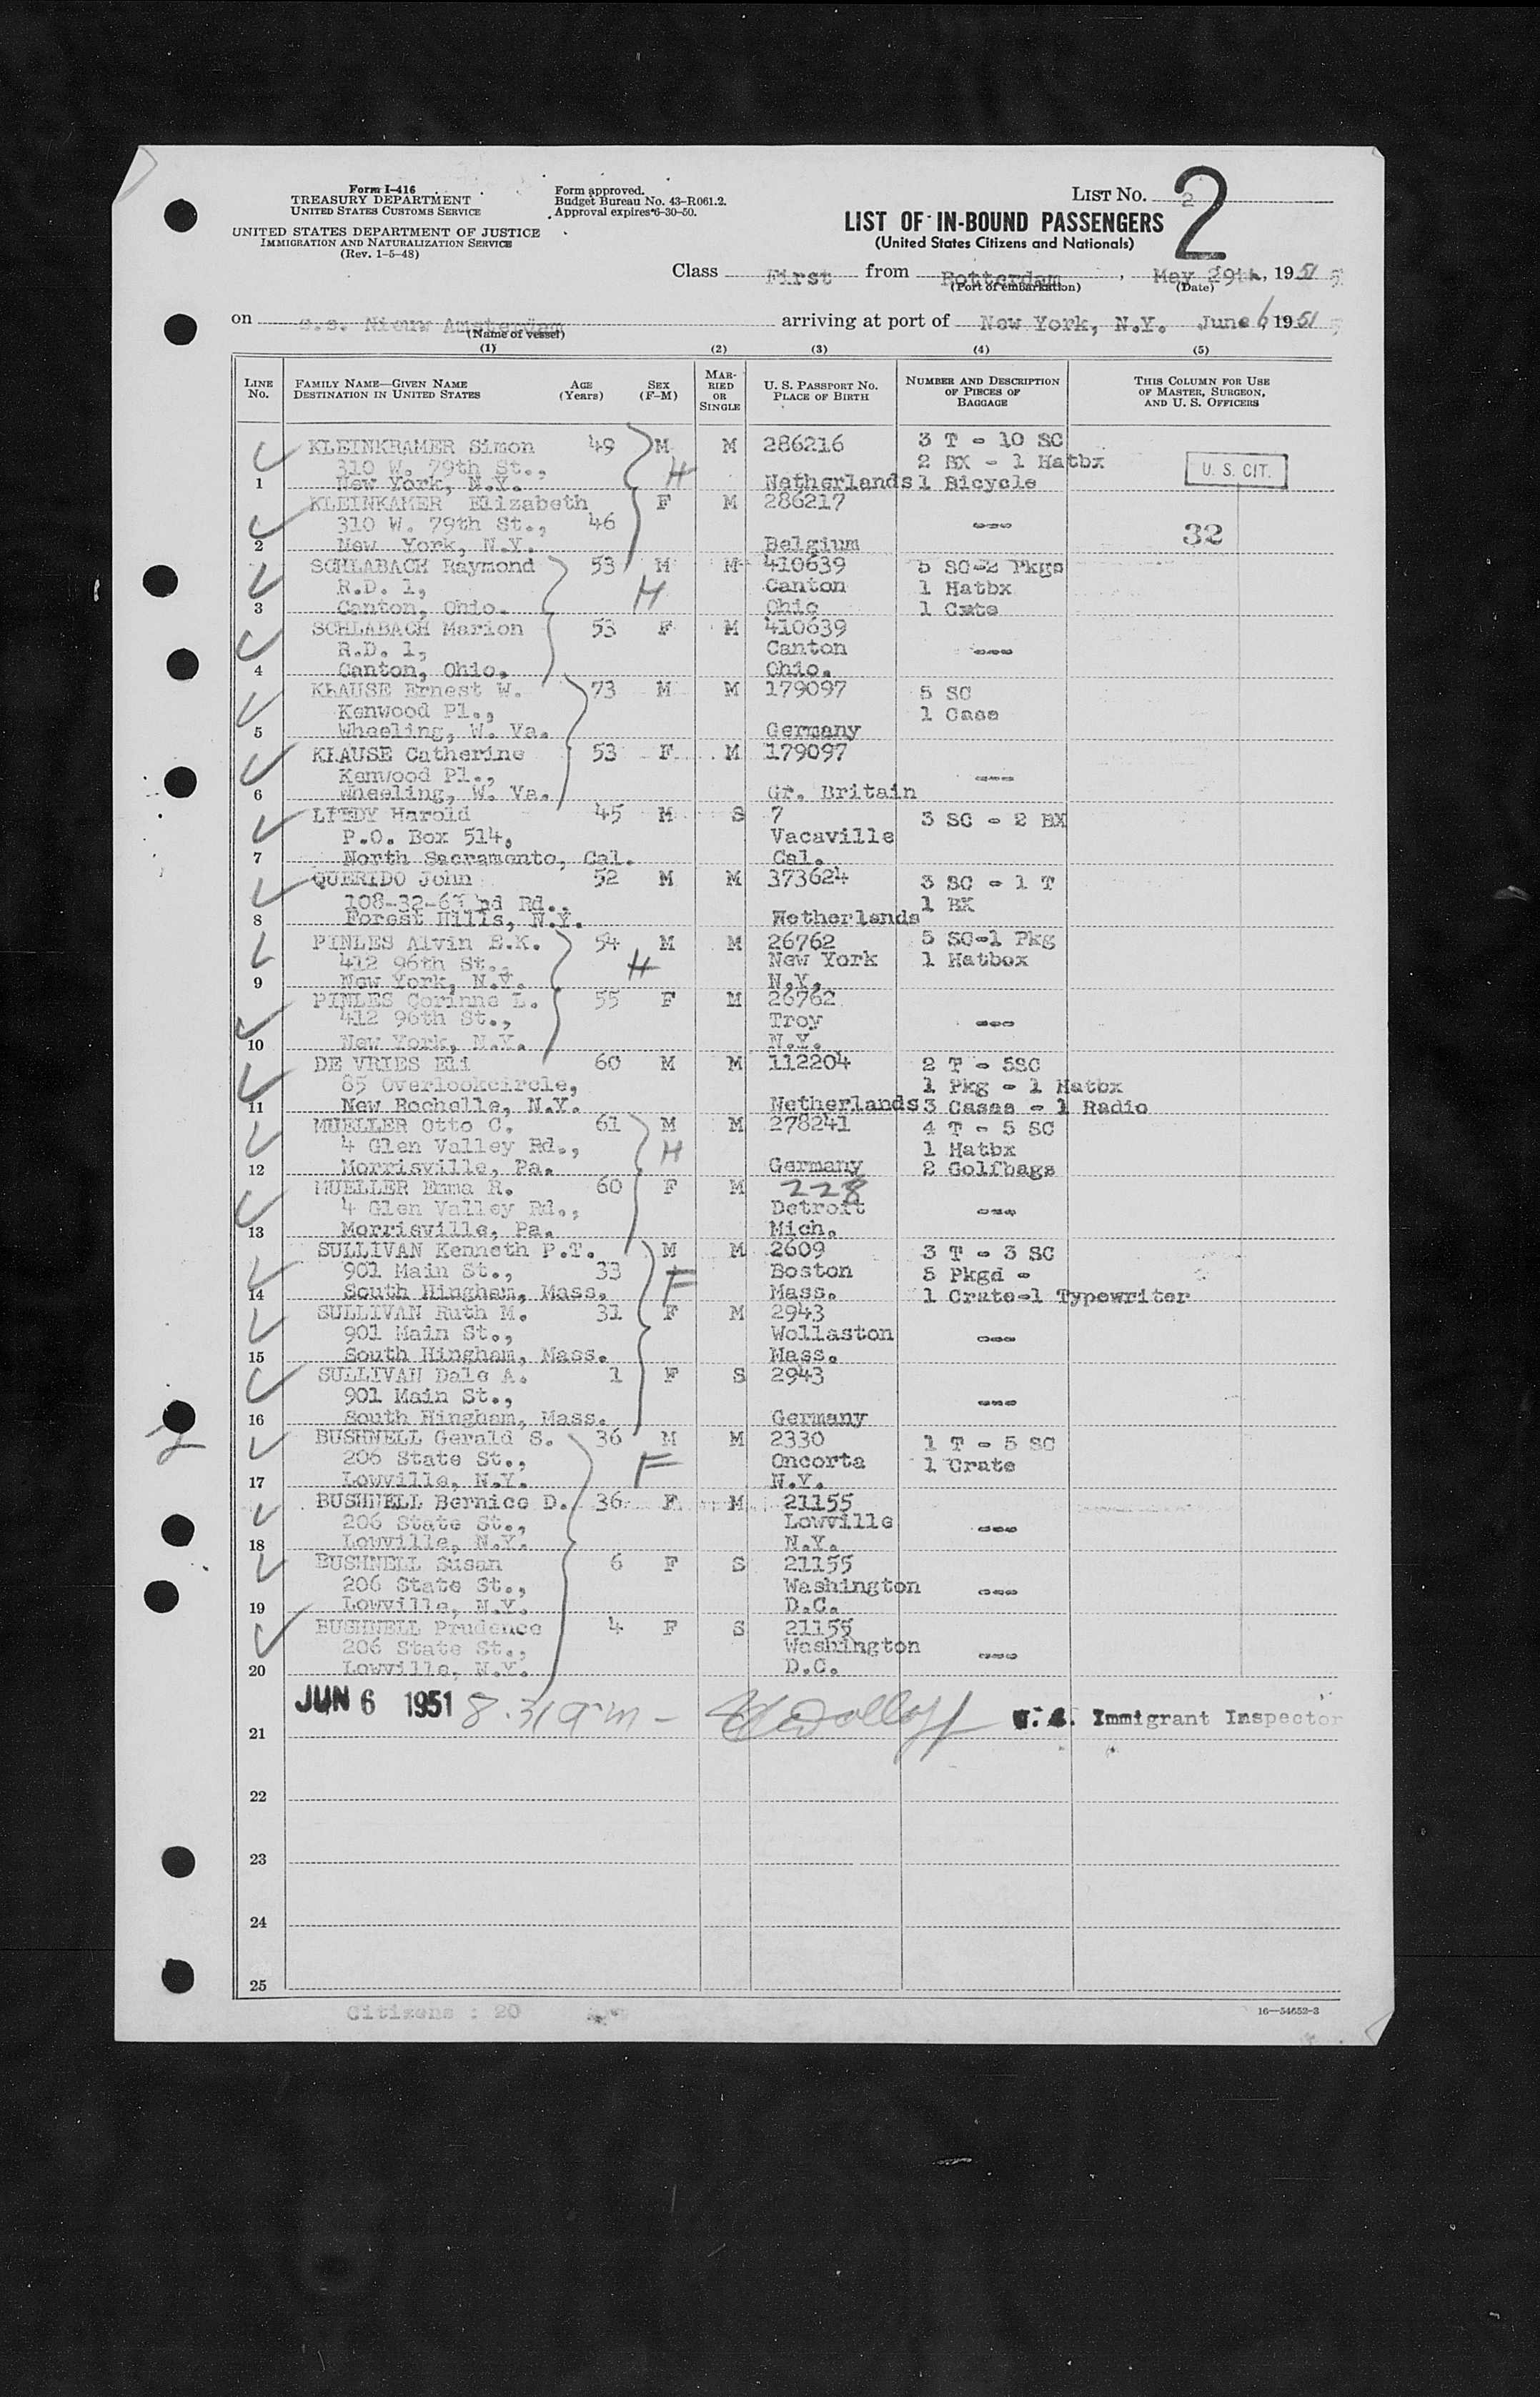 Form I-416
TREASURY DEPARTMENT
UNITED STATES CUSTOMS SERVICE
UNITED STATES DEPARTMENT OF JUSTICE
IMMIGRATION AND NATURALIZATION SERVICE
(Rev. 1-5-48)
Form approved.
Budget Bureau No. 43-R061.2.
Approval expires 6-30-50.
LIST NO. 2
2
LIST OF IN-BOUND PASSENGERS
(United States Citizens and Nationals)
Class First from Rotterdam, May 29th, 1951
(Port of embarkation) (Date)
on s.s. Nieuw Amsterdam arriving at port of New York, N.Y. June 6, 1951
(Name of vessel)
(1) (2) (3) (4) (5)
LINE NO. FAMILY NAME—GIVEN NAME DESTINATION IN UNITED STATES AGE (Years) SEX (F-M) MARRIED OR SINGLE U. S. PASSPORT NO. PLACE OF BIRTH NUMBER AND DESCRIPTION OF PIECES OF BAGGAGE THIS COLUMN FOR USE OF MASTER, SURGEON, AND U. S. OFFICERS
KLEINKRAMER Simon 49 M M 286216 3 T - 10 SC
310 W. 79th St., H 2 BX - 1 Hatbx U. S. CIT.
1 New York, N.Y. Netherlands 1 Bicycle
KLEINKAMER Elizabeth F M 286217
310 W. 79th St., 46 --- 32
2 New York, N.Y. Belgium
SCHLABACH Raymond 53 M M 410639 5 SC-2 Pkgs
R.D. 1, H Canton 1 Hatbx
3 Canton, Ohio. Ohio 1 Crate
SCHLABACH Marion 53 F M 410639
R.D. 1, Canton ---
4 Canton, Ohio. Ohio.
KLAUSE Ernest W. 73 M M 179097 5 SC
Kenwood Pl., 1 Case
5 Wheeling, W. Va. Germany
KLAUSE Catherine 53 F M 179097
Kenwood Pl., ---
6 Wheeling, W. Va. Gr. Britain
Harold 45 M S 7 3 SC - 2 BX
P.O. Box 514, Vacaville
7 North Sacramento, Cal. Cal.
QUERIDO John 52 M M 373624 3 SC - 1 T
108-32-63 nd Rd. 1 BX
8 Forest Hills, N.Y. Netherlands
PINLES Alvin E.K. 54 M M 26762 5 SC-1 Pkg
412 96th St., H New York 1 Hatbox
9 New York, N.Y. N.Y.
PINLES Corinne L. 55 F M 26762
412 96th St., Troy ---
10 New York, N.Y. N.Y.
DE VRIES Eli 60 M M 112204 2 T - 5SC
85 Overlookcircle, 1 Pkg - 1 Hatbx
11 New Rochelle, N.Y. Netherlands 3 Cases - 1 Radio
MUELLER Otto C. 61 M M 278241 4 T - 5 SC
4 Glen Valley Rd., H 1 Hatbx
12 Morrisville, Pa. Germany 2 Golfbags
MUELLER Emma R. 60 F M 228
4 Glen Valley Rd., Detroit ---
13 Morrisville, Pa. Mich.
SULLIVAN Kenneth P.T. M M 2609 3 T - 3 SC
901 Main St., 33 F Boston 5 Pkgd -
14 South Hingham, Mass. Mass. 1 Crate-1 Typewriter
SULLIVAN Ruth M. 31 F M 2943
901 Main St., Wollaston ---
15 South Hingham, Mass. Mass.
SULLIVAN Dale A. 1 F S 2943
901 Main St., ---
16 South Hingham, Mass. Germany
BUSHNELL Gerald S. 36 M M 2330 1 T - 5 SC
206 State St., F Oncorta 1 Crate
17 Lowville, N.Y. N.Y.
BUSHNELL Bernice D. 36 F M 21155
206 State St., Lowville ---
18 Lowville, N.Y. N.Y.
BUSHNELL Susan 6 F S 21155
206 State St., Washington ---
19 Lowville, N.Y. D.C.
BUSHNELL Prudence 4 F S 21155
206 State St., Washington ---
20 Lowville, N.Y. D.C.
JUN 6 1951 8.31 am - U. S. Immigrant Inspector
21
22
23
24
25
Citizens : 20
16—54652-3